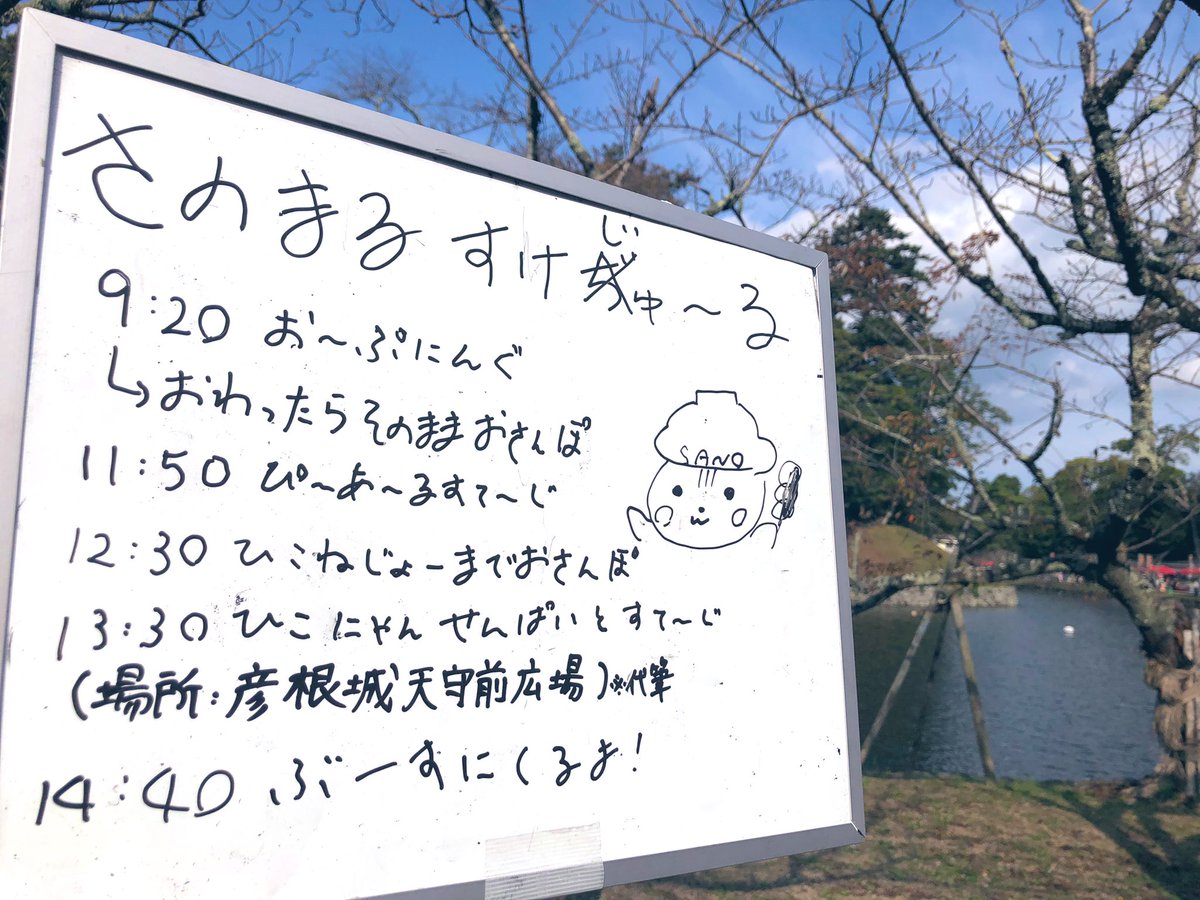 さのまる すけじゅ〜る
9:20 お〜ぷにんぐ
↳おわったらそのままおさんぽ
SANO
11:50 ぴ〜あ〜るすて〜じ
12:30 ひこねじょーまでおさんぽ
13:30 ひこにゃんせんぱいとすて〜じ
(場所:彦根城天守前広場)※代筆
14:40 ぶーすにくるよ!